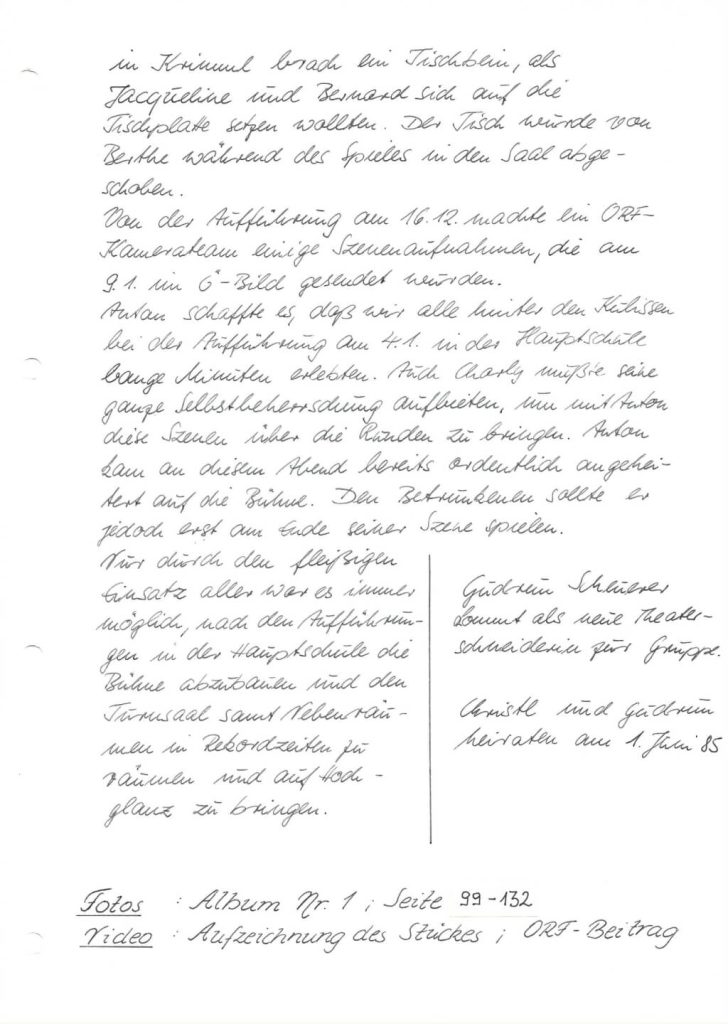 in Krimml brach ein Tischbein, als
Jacqueline und Bernard sich auf die
Tischplatte setzen wollten. Der Tisch wurde von
Berthe während des Spieles in den Saal abge-
schoben.
Von der Aufführung am 16.12. machte ein ORF-
Kamerateam einige Szenenaufnahmen, die am
9.1. im Ö-Bild gesendet wurden.
Anton schaffte es, daß wir alle hinter den Kulissen
bei der Aufführung am 4.1. in der Hauptschule
bange Minuten erlebten. Auch Charly mußte seine
ganze Selbstbeherrschung aufbieten, um mit Anton
diese Szenen über die Runden zu bringen. Anton
kam an diesem Abend bereits ordentlich angehei-
tert auf die Bühne. Den Betrunkenen sollte er
jedoch erst am Ende seiner Szene spielen.
Nur durch den fleißigen
Einsatz aller war es immer
möglich, nach den Aufführun-
gen in der Hauptschule die
Bühne abzubauen und den
Turnsaal samt Nebenräu-
men in Rekordzeiten zu
räumen und auf Hoch-
glanz zu bringen.
Gudrun Scheuerer
kommt als neue Theater-
schneiderin zur Gruppe.
Christl und Gudrun
heiraten am 1. Juni 85
Fotos : Album Nr. 1 ; Seite 99-132
Video : Aufzeichnung des Stückes ; ORF-Beitrag